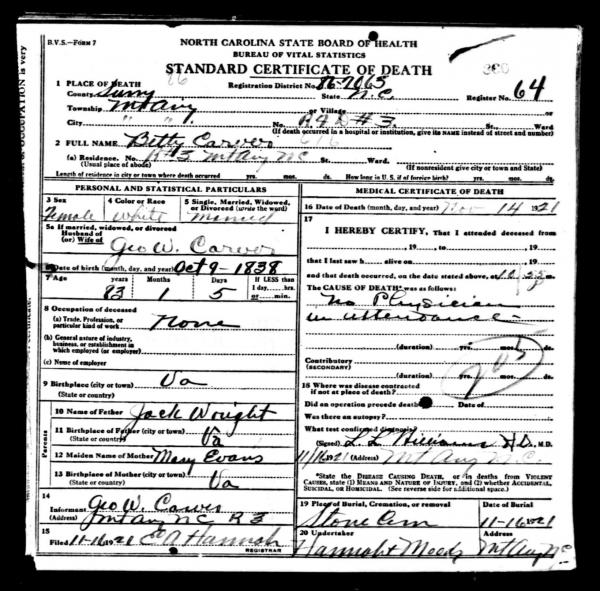 B.V.S.—FORM 7
NORTH CAROLINA STATE BOARD OF HEALTH
BUREAU OF VITAL STATISTICS
STANDARD CERTIFICATE OF DEATH
& OCCUPATION is very
1 PLACE OF DEATH
Registration District No. 86-7065
Register No. 64
County Surry State N.C.
Township Mt Airy or Village
City " " No. R.F.D #3. St., Ward
(If death occurred in a hospital or institution, give its NAME instead of street and number)
2 FULL NAME Betty Carver
(a) Residence. No. R #3 Mt Airy NC St. Ward.
(Usual place of abode) (If nonresident give city or town and State)
Length of residence in city or town where death occurred yrs. mos. ds. How long in U. S., if of foreign birth? yrs. mos. ds.
PERSONAL AND STATISTICAL PARTICULARS
3 Sex 4 Color or Race 5 Single, Married, Widowed, or Divorced (write the word)
Female White Married
5a If married, widowed, or divorced
Husband of
(or) Wife of Geo W. Carver
6 Date of birth (month, day, and year) Oct 9-1838
7 Age years Months Days If LESS than
1 day, hrs.
or min.
83 1 5
8 Occupation of deceased
(a) Trade, Profession, or
particular kind of work none
(b) General nature of industry,
business, or establishment in
which employed (or employer)
(c) Name of employer
9 Birthplace (city or town) Va
(State or country)
Parents
10 Name of Father Jack Wright
11 Birthplace of Father (city or town)
(State or country) Va
12 Maiden Name of Mother Mary Evans
13 Birthplace of Mother (city or town)
(State or country) Va
14
Informant Geo W. Carver
(Address) Mt Airy NC R 3
15
Filed 11-16 1921 E A Hannah
REGISTRAR
MEDICAL CERTIFICATE OF DEATH
16 Date of Death (month, day, and year) Nov 14 1921
17
I HEREBY CERTIFY, That I attended deceased from
, 19 , to , 19
that I last saw h alive on , 19
and that death occurred, on the date stated above, at
The CAUSE OF DEATH* was as follows:
No Physician
in attendance
(duration) yrs. mos. ds.
Contributory
(SECONDARY)
(duration) yrs. mos. ds.
18 Where was disease contracted
if not at place of death?
Did an operation precede death Date of
Was there an autopsy?
What test confirmed diagnosis
(Signed) L. L. Williams M.D., M.D.
11/16 1921 (Address) Mt Airy N.C.
*State the DISEASE CAUSING DEATH, or in deaths from VIOLENT
CAUSES, state (1) MEANS AND NATURE OF INJURY, and (2) whether ACCIDENTAL,
SUICIDAL, or HOMICIDAL. (See reverse side for additional space.)
19 Place of Burial, Cremation, or removal Date of Burial
Stone Cem 11-16 1921
20 Undertaker Address
Hannah & Moody Mt Airy NC